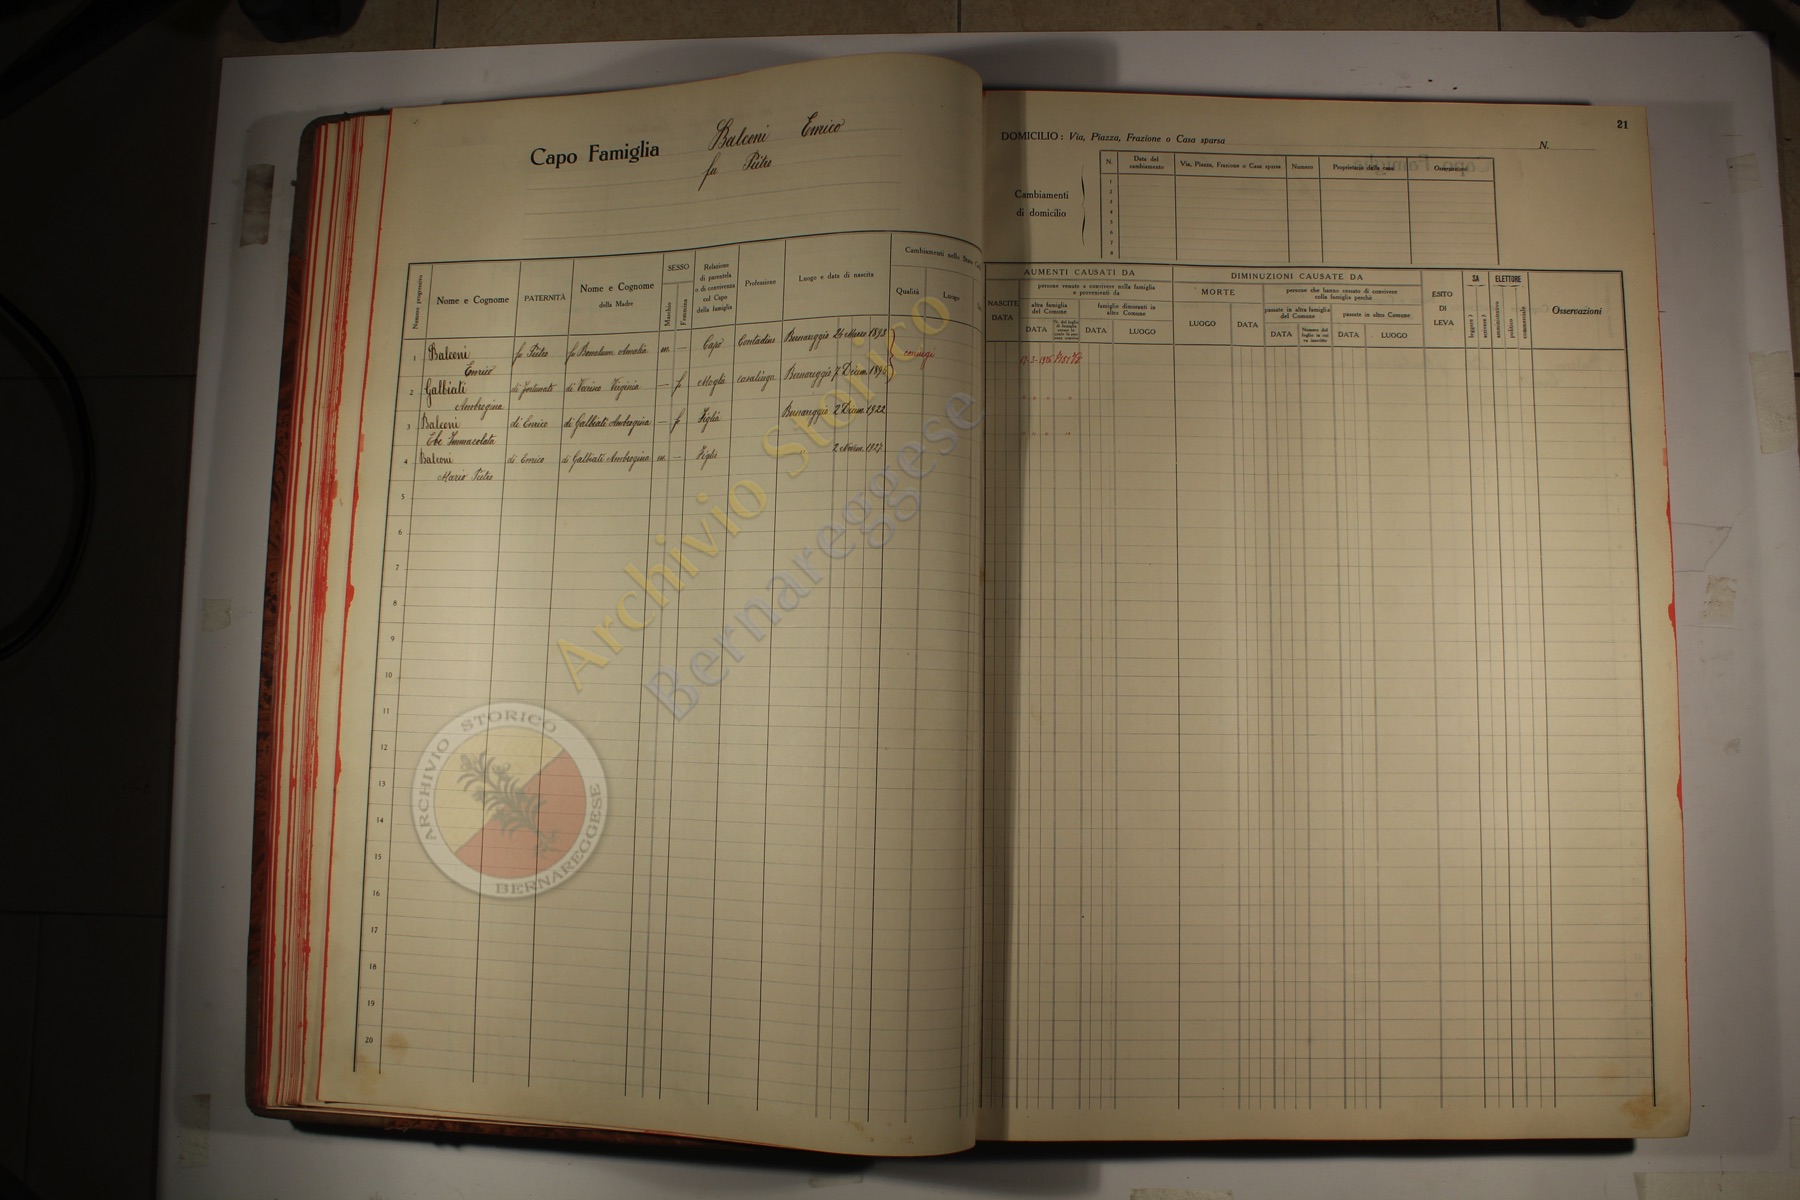 21
Capo Famiglia
Balconi Enrico
fu Pietro
DOMICILIO: Via, Piazza, Frazione o Casa sparsa
N.
Cambiamenti
di domicilio
N. Data del cambiamento Via, Piazza, Frazione o Casa sparsa Numero Proprietario della casa Osservazioni
1
2
3
4
5
6
7
8
Numero progressivo
Nome e Cognome
PATERNITÀ
Nome e Cognome
della Madre
SESSO
Maschio
Femmina
Relazione
di parentela
o di convivenza
col Capo
della famiglia
Professione
Luogo e data di nascita
Cambiamenti nello Stato
Qualità
Luogo
NASCITE
DATA
AUMENTI CAUSATI DA
persone venute a convivere nella famiglia
e provenienti da
altra famiglia
del Comune
DATA
famiglie dimoranti in
altro Comune
DATA LUOGO
DIMINUZIONI CAUSATE DA
MORTE
LUOGO DATA
persone che hanno cessato di convivere
colla famiglia perchè
passate in altra famiglia
del Comune
DATA
passate in altro Comune
DATA LUOGO
ESITO
DI
LEVA
SA
leggere?
scrivere?
ELETTORE
amministrativo
politico
commerciale
Osservazioni
1 Balconi fu Pietro m. — Capo Contadino Bernareggio 26 Marzo 1893 coniugi
Enrico
2 Galbiati di Fortunato Virginia — f. Moglie casalinga Bernareggio 7 Dicem.
Ambrogina
3 Balconi di Enrico di Galbiati Ambrogina — f. Figlia Bernareggio 2 Dicem. 1922
Immacolata
4 Balconi di Enrico di Galbiati Ambrogina m. — Figlio " 1927
Mario Pietro
5
6
7
8
9
10
11
12
13
14
15
16
17
18
19
20
Archivio Storico
Bernareggese
ARCHIVIO STORICO
BERNAREGGESE